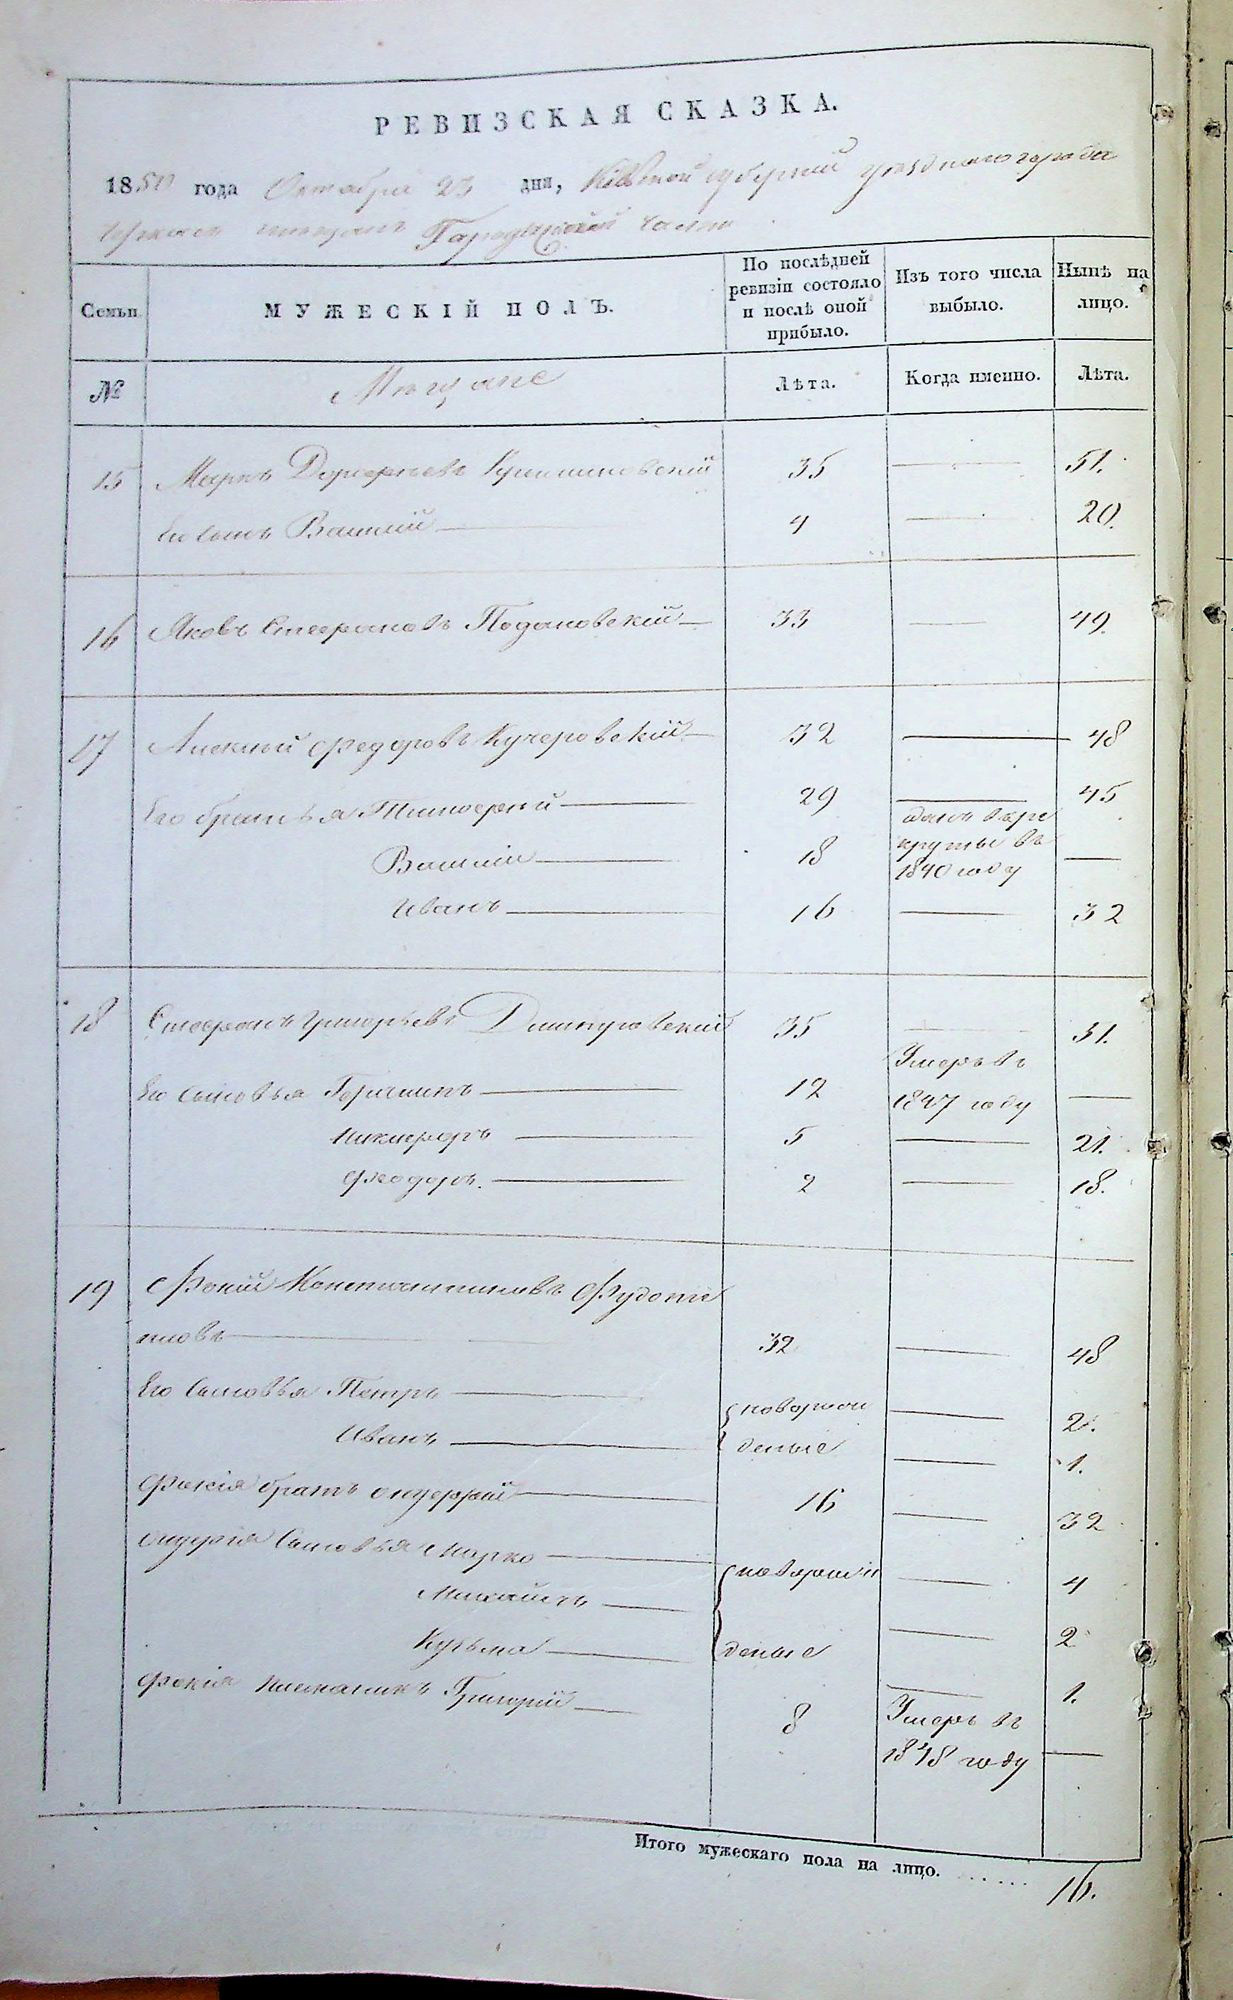 РЕВИЗСКАЯ СКАЗКА.
1850 года Октября 23 дня, Кіевской губерніи уезднаго города
Городищенской части
Семьи.
МУЖЕСКІЙ ПОЛЪ.
По послѣдней ревизіи состояло и послѣ оной прибыло.
Изъ того числа выбыло.
Нынѣ на лицо.
№
Мещане
Лѣта.
Когда именно.
Лѣта.
15 Марко 35 — 51.
Его сынъ Василій — 4 — 20.
16 Яковъ Стефановъ — 33 — 49.
17 Алексѣй Федоровъ Кучеровскій — 32 — 48
Его братья Тимофей — 29 — 45
Василій — 18 данъ в рекруты въ 1840 году —
Иванъ — 16 — 32
18 Стефанъ Григорьевъ 35 — 51.
Его сыновья — 12 Умеръ въ 1847 году —
Никифоръ — 5 — 21.
Феодоръ. — 2 — 18.
19 Фокій Константиновъ
новъ — 32 — 48
Его сыновья Петръ — новорож — 2.
Иванъ — деные — 1.
Фокія братъ — 16 — 32
сыновья Марко — новорож — 4
Михайло — 2
Кузьма — деные — 1.
Фокія племяникъ Григорій — 8 Умеръ въ 1848 году —
Итого мужескаго пола на лицо. . . . . . . 16.